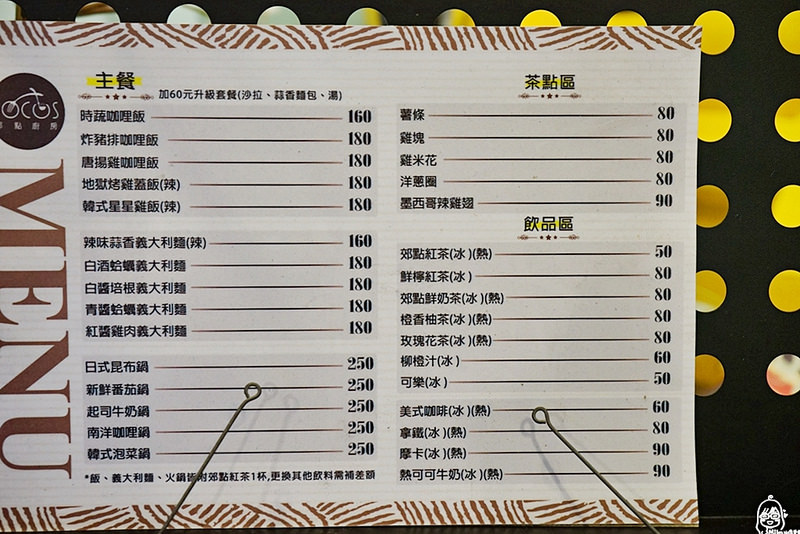 OCOS
郊點廚房
MENU
主餐
加60元升級套餐(沙拉、蒜香麵包、湯)
時蔬咖哩飯 160
炸豬排咖哩飯 180
唐揚雞咖哩飯 180
地獄烤雞蓋飯(辣) 180
韓式星星雞飯(辣) 180
辣味蒜香義大利麵(辣) 160
白酒蛤蠣義大利麵 180
白醬培根義大利麵 180
青醬蛤蠣義大利麵 180
紅醬雞肉義大利麵 180
日式昆布鍋 250
新鮮番茄鍋 250
起司牛奶鍋 250
南洋咖哩鍋 250
韓式泡菜鍋 250
*飯、義大利麵、火鍋皆附郊點紅茶1杯,更換其他飲料需補差額
茶點區
薯條 80
雞塊 80
雞米花 80
洋蔥圈 80
墨西哥辣雞翅 90
飲品區
郊點紅茶(冰)(熱) 50
鮮檸紅茶(冰) 80
郊點鮮奶茶(冰)(熱) 80
橙香柚茶(冰)(熱) 80
玫瑰花茶(冰)(熱) 80
柳橙汁(冰) 60
可樂(冰) 50
美式咖啡(冰)(熱) 60
拿鐵(冰)(熱) 80
摩卡(冰)(熱) 90
熱可可牛奶(冰)(熱) 90